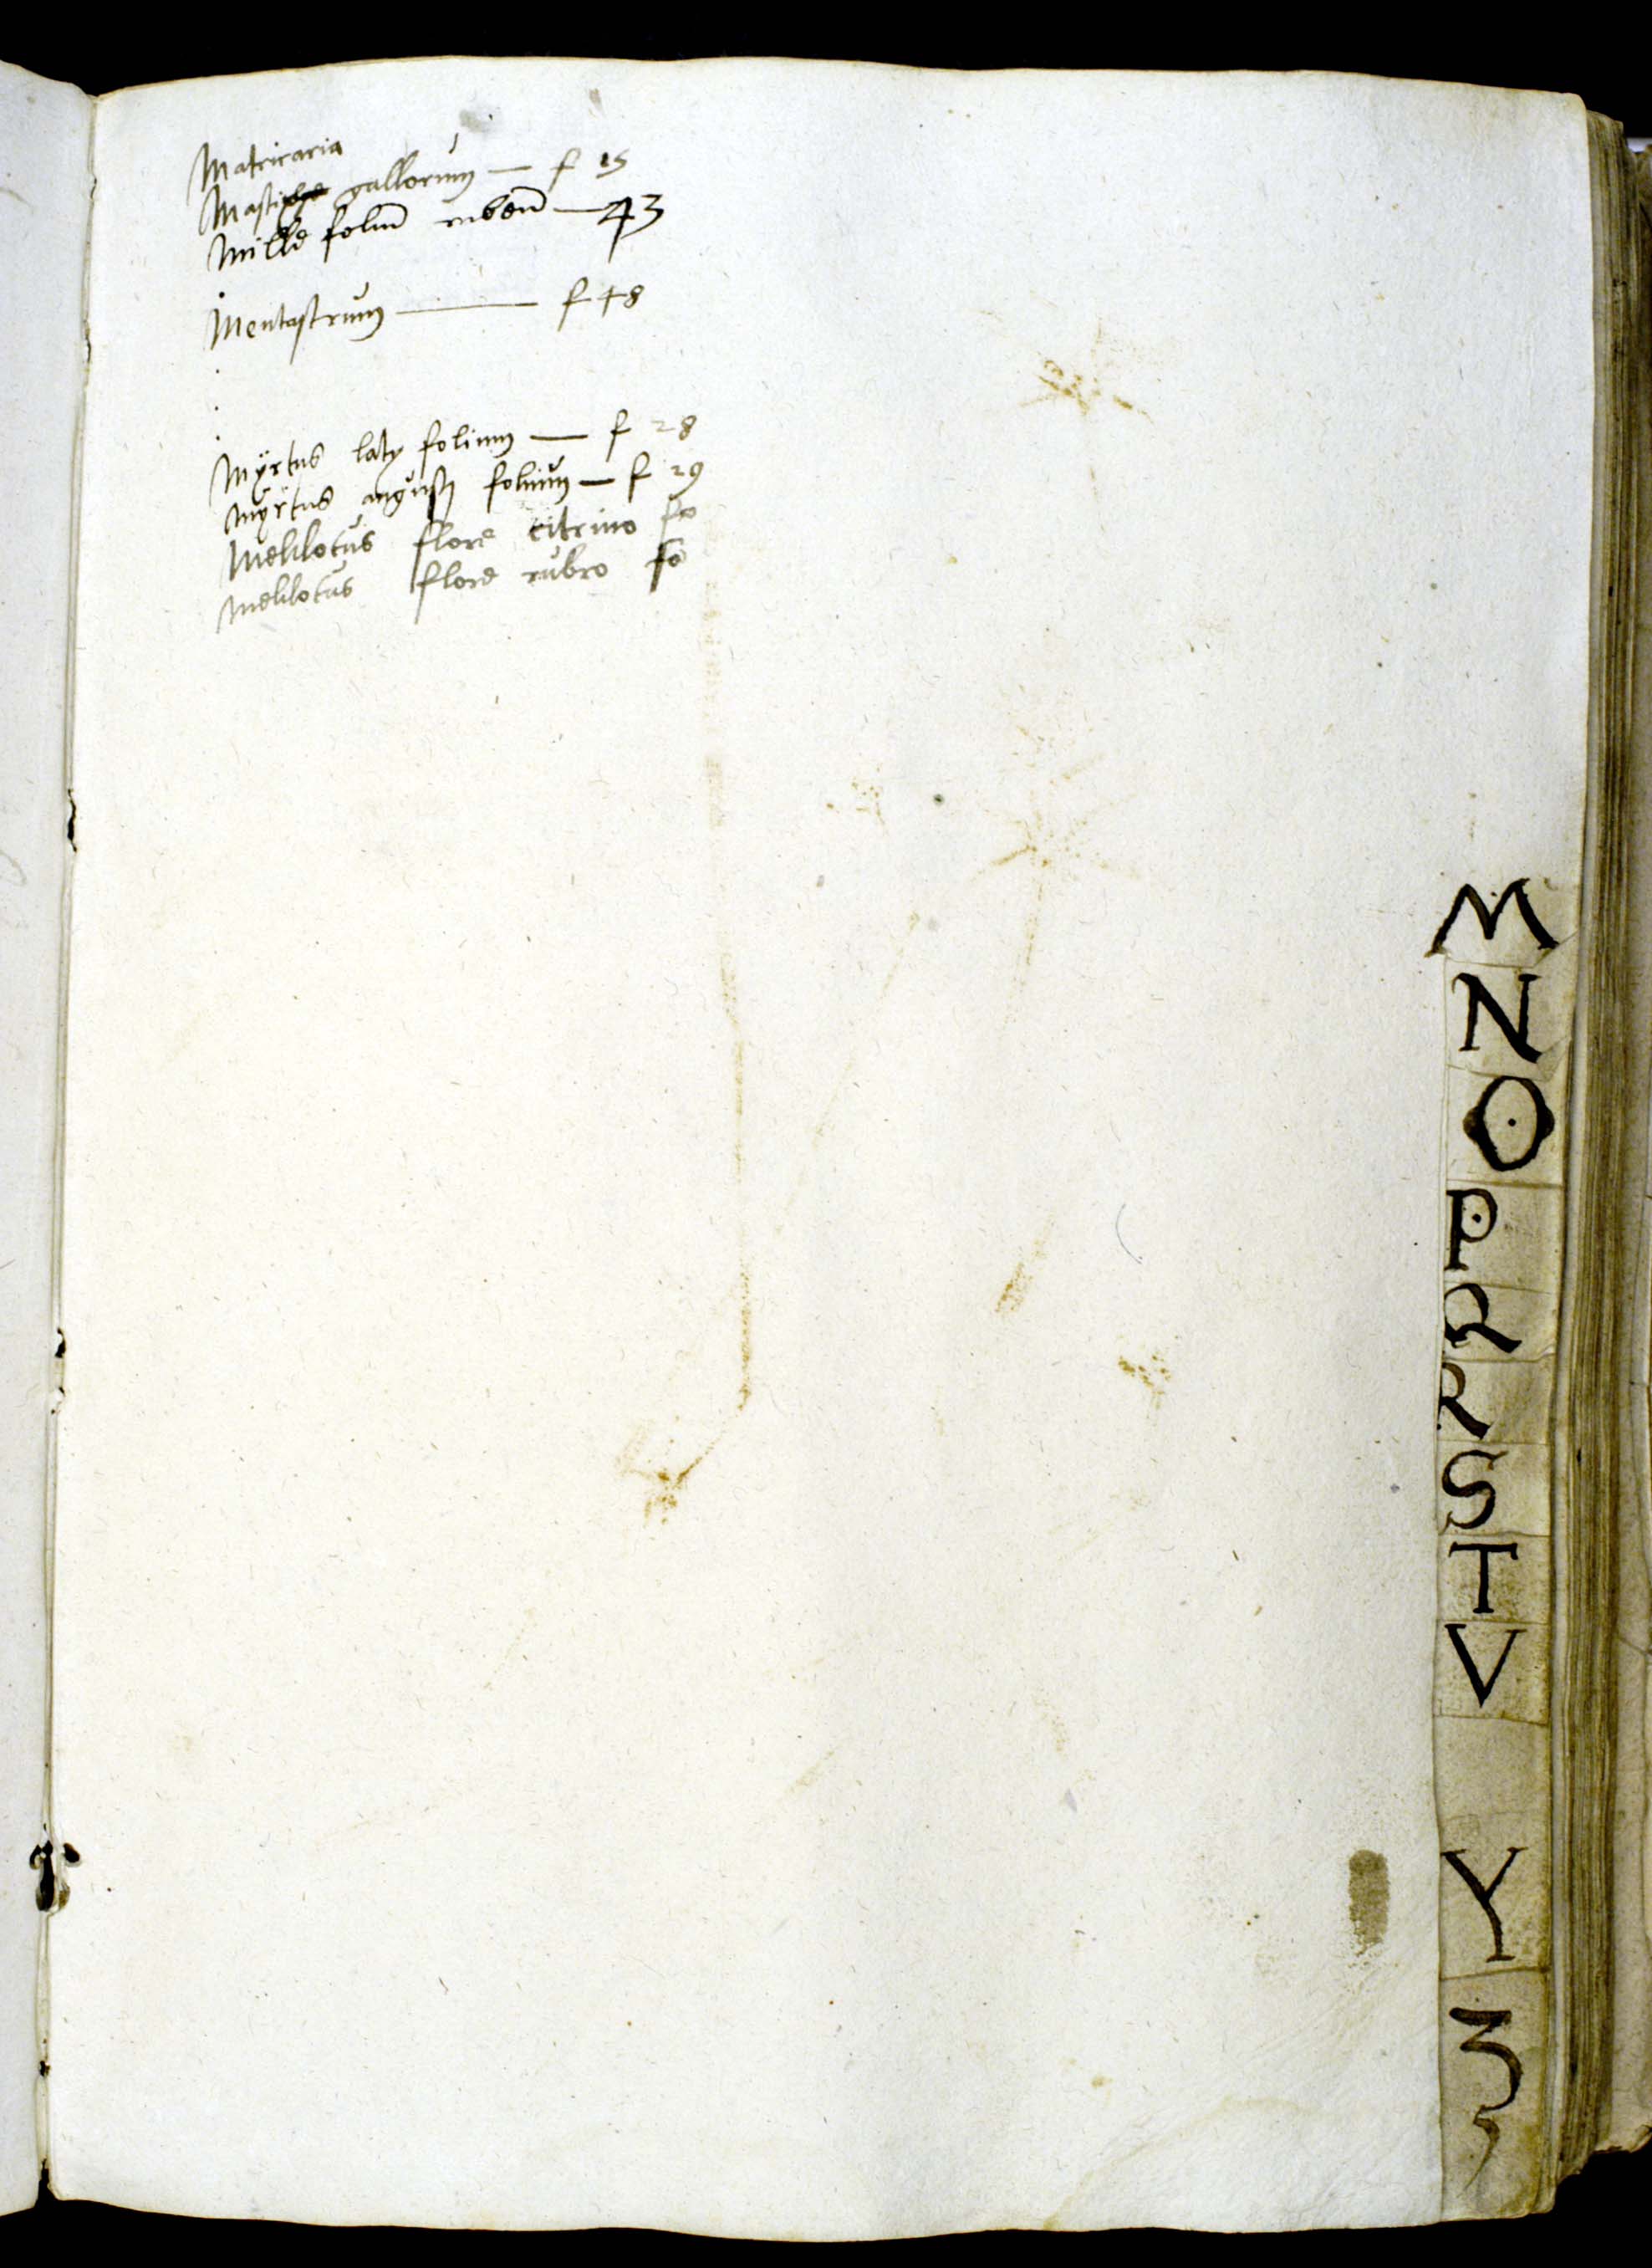 Matricaria
Mastiche gallorum — f 15
Mille foliū rubeū — 43
Mentastrum — f 48
Mÿrtus laty folium — f 28
Mÿrtus angusty folium — f 29
Melilotus flore citrino fo
melilotus flore rubro fo
M
N
O
P
Q
R
S
T
V
Y
Z